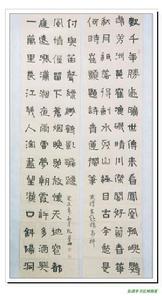 數千年勝迹曠世傳來看鳳凰孤岫鸚
鵡芳洲黃鵠漁磯晴川傑閣好個春花
秋月只落得剩水殘山極目古今愁是
何時崔顥題詩青蓮擱筆
一萬里長江幾人淘盡望漢口斜陽洞
庭遠漲瀟湘夜雨雲夢朝霞許多酒興
風情僅留下蒼煙晚照放懷天地窄都
付與笛聲縹緲鶴影蹁躚